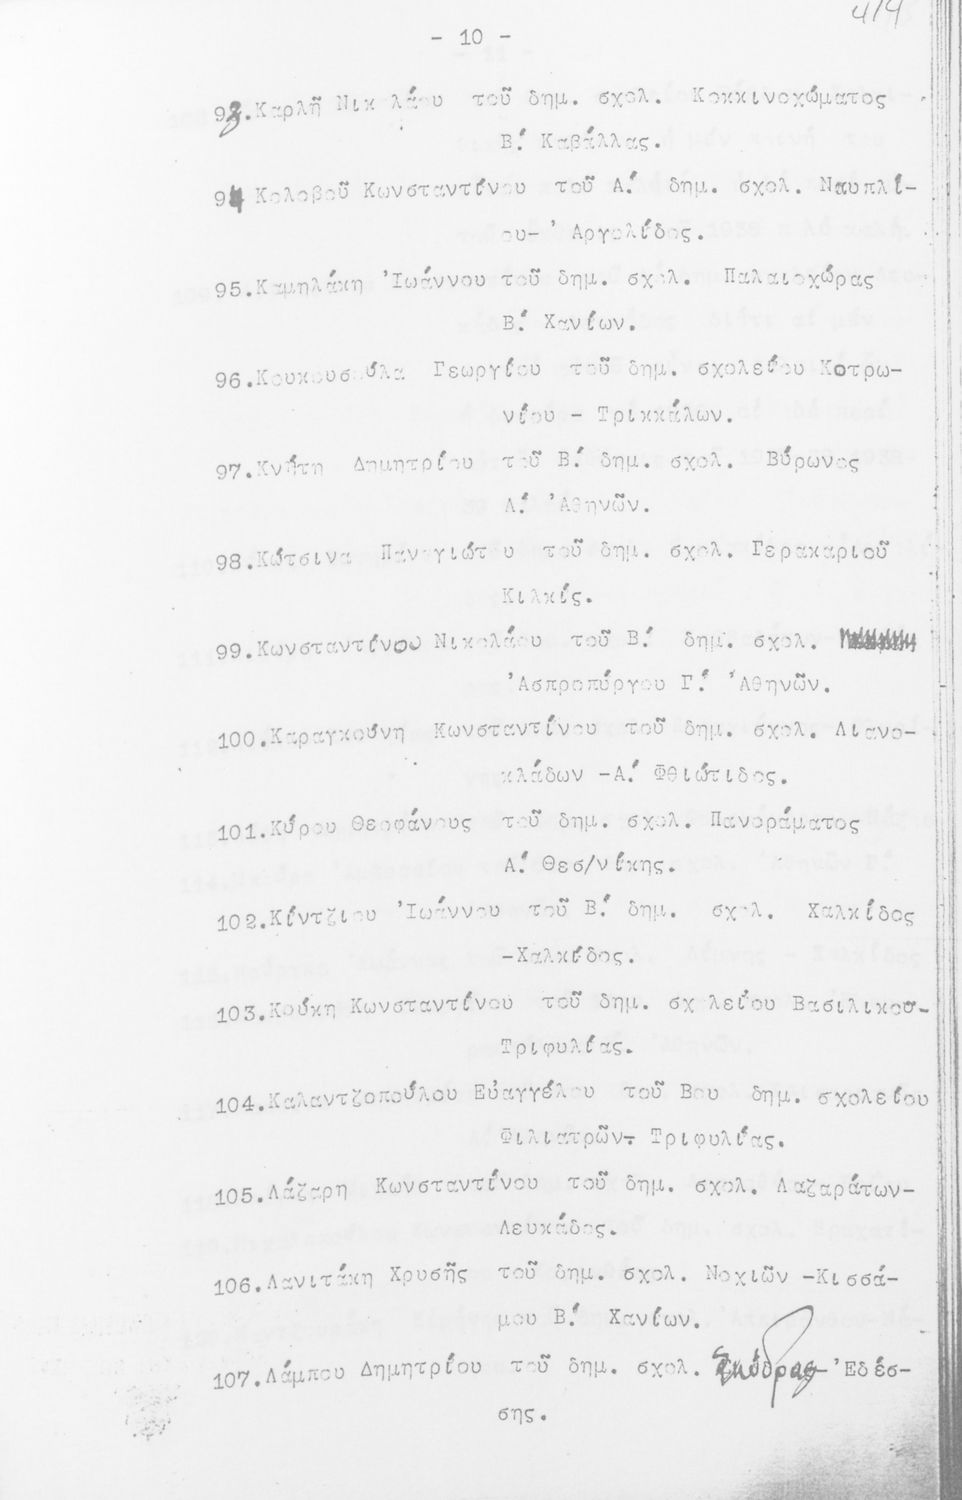 414
- 10 -
93.Καρλῆ Νικ λάου τοῦ δημ. σχολ. Κοκκινοχώματος
Β΄. Καβάλλας.
94 Κολοβοῦ Κωνσταντίνου τοῦ Α΄. δημ. σχολ. Ναυπλί-
ου-'Αργολίδος.
95.Καμηλάκη 'Ιωάννου τοῦ δημ. σχολ. Παλαιοχώρας
Β΄. Χανίων.
96.Κουκουσούλα Γεωργίου τοῦ δημ. σχολείου Κοτρω-
νίου - Τρικκάλων.
97.Κνήτη Δημητρίου τοῦ Β΄. δημ. σχολ. Βύρωνος
Α΄. 'Αθηνῶν.
98.Κώτσινα Παναγιώτ υ τοῦ δημ. σχολ. Γερακαριοῦ
Κιλκίς.
99.Κωνσταντίνου Νικολάου τοῦ Β΄. δημ. σχολ.
'Ασπροπύργου Γ΄. 'Αθηνῶν.
100.Καραγκούνη Κωνσταντίνου τοῦ δημ. σχολ. Λιανο-
κλάδων -Α΄. Φθιώτιδος.
101.Κύρου Θεοφάνους τοῦ δημ. σχολ. Πανοράματος
Α΄. Θεσ/νίκης.
102.Κίντζιου 'Ιωάννου τοῦ Β΄. δημ. σχολ. Χαλκίδος
-Χαλκίδος.
103.Κούκη Κωνσταντίνου τοῦ δημ. σχ λείου Βασιλικοῦ-
Τριφυλίας.
104.Καλαντζοπούλου Εὐαγγέλου τοῦ Βου δημ. σχολείου
Φιλιατρῶν- Τριφυλίας.
105.Λάζαρη Κωνσταντίνου τοῦ δημ. σχολ. Λαζαράτων-
Λευκάδος.
106.Λανιτάκη Χρυσῆς τοῦ δημ. σχολ. Νοχιῶν -Κισσά-
μου Β΄. Χανίων.
107.Λάμπου Δημητρίου τοῦ δημ. σχολ. Σκύδρας- 'Εδέσ-
σης.